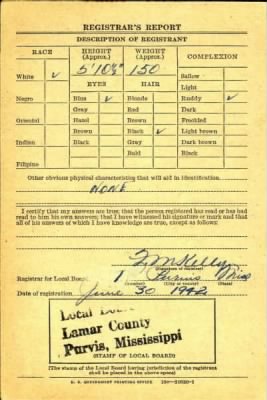 REGISTRAR'S REPORT
DESCRIPTION OF REGISTRANT
RACE HEIGHT (Approx.) WEIGHT (Approx.) COMPLEXION
5' 10½" 150
White ✓ Sallow
EYES HAIR Light
Negro Blue ✓ Blonde Ruddy ✓
Gray Red Dark
Oriental Hazel Brown Freckled
Brown Black ✓ Light brown
Indian Black Gray Dark brown
Bald Black
Filipino
Other obvious physical characteristics that will aid in identification
NONE
I certify that my answers are true; that the person registered has read or has had
read to him his own answers; that I have witnessed his signature or mark and that
all of his answers of which I have knowledge are true, except as follows:
Kelly
(Signature of registrar)
Registrar for Local Board 1 Purvis Miss
(Number) (City or county) (State)
Date of registration June 30 1942
Local Board
Lamar County
Purvis, Mississippi
(STAMP OF LOCAL BOARD)
(The stamp of the Local Board having jurisdiction of the registrant
shall be placed in the above space)
U. S. GOVERNMENT PRINTING OFFICE